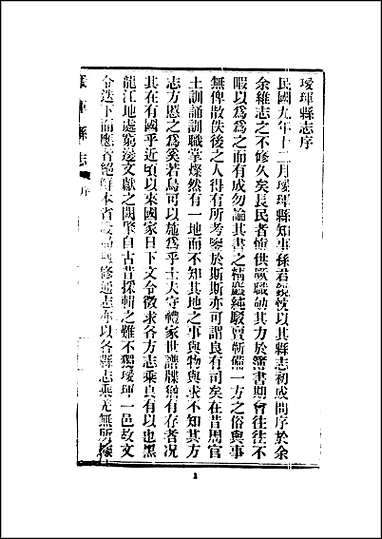 璦琿縣志序
民國九年十二月璦琿縣知事孫君鏡忱以其縣志初成問序於余
余維志之不修久矣長民者僅供厥職勉其力於簿書期會往往不
暇以為為之而有成勿論其書之精嚴純駁賣漸備一方之俗與事
無俾散佚後之人得有所考鑒於斯斯亦可謂良有司矣在昔周官
土訓誦訓職掌燦然有一地而不知其地之事與物與求不知其方
志方慝之為奚若烏可以施為乎士大夫守禮家世譜牒猶有存者况
其在有國乎近頃以來國家日下文令徵求各方志乘良有以也黑
龍江地處窮邊文獻之闕肇自古昔採輯之難不獨璦琿一邑故文
令迭下而應者絕尠本省修通志亦以各縣志乘尤無所據
璦琿縣志 序
1